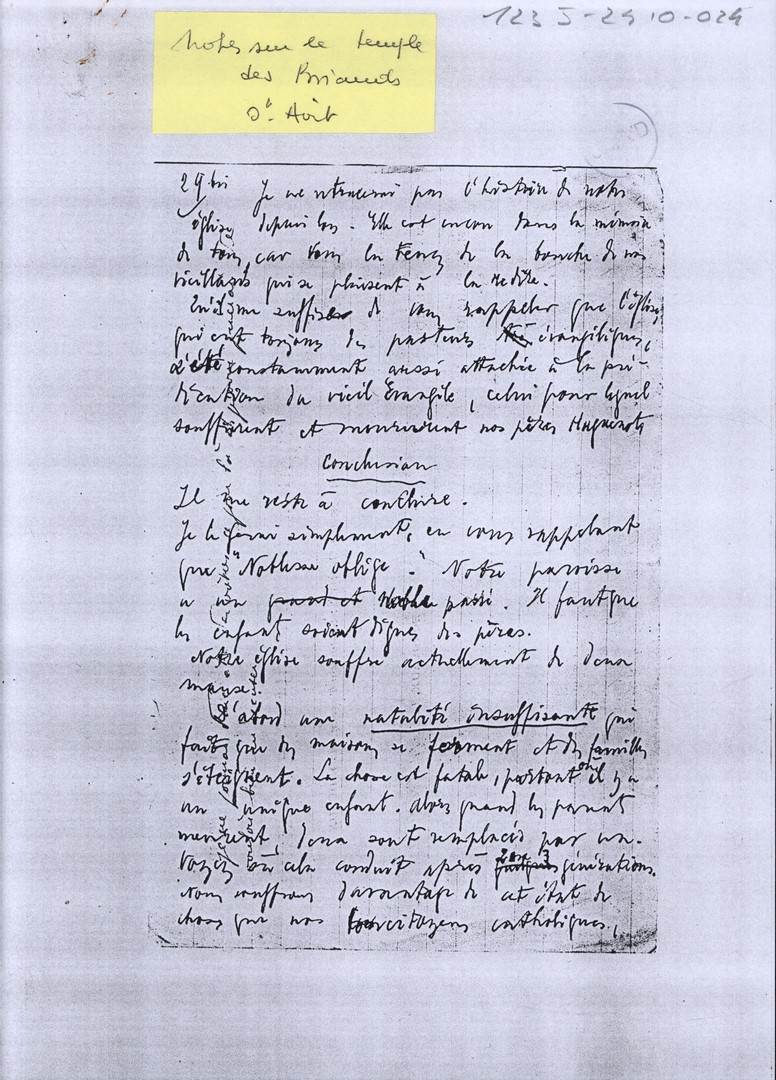 123 J-2910-024
Notes sur le temple
des Briands
St Avit
29 bis Je ne retracerai pas l'histoire de notre
église depuis lors. Elle est encore dans la mémoire
de tous, car vous la tenez de la bouche de vos
vieillards qui se plaisent à la redire.
Qu'il me suffise de vous rappeler que l'église,
qui eut toujours des pasteurs évangéliques,
a été constamment aussi attachée à la pré-
dication du vieil Evangile, celui pour lequel
souffrirent et moururent nos pères Huguenots
Conclusion
Il me reste à conclure.
Je le ferai simplement, en vous rappelant
que "Noblesse oblige". Notre paroisse
a un grand et noble passé. Il faut que
les enfants soient dignes des pères.
Notre église souffre actuellement de deux
maux.
D'abord une natalité insuffisante qui
fait que des maisons se ferment et des familles
s'éteignent. La chose est fatale, partout où il y a
un unique enfant. Alors quand les parents
meurent, deux sont remplacés par un.
Voyez où cela conduit après 2 ou 3 générations.
Nous souffrons davantage de cet état de
choses que nos concitoyens catholiques,